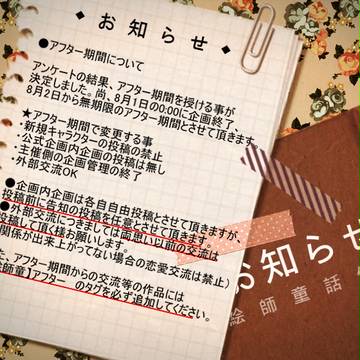 ◆お知らせ◆
●アフター期間について
アンケートの結果、アフター期間を授ける事が
決定しました。尚、8月1日の0:00に企画終了、
8月2日から無期限のアフター期間とさせて頂きます。
★アフター期間で変更する事
・新規キャラクターの投稿の禁止
・公式企画内企画の投稿は無し
・主催側の企画管理の終了
・外部交流OK
●企画内企画は各自自由投稿とさせて頂きますが、
投稿前に告知の投稿を任意とさせて頂きます。
●外部交流につきましては両思い以前の交流は
投稿して頂く様お願いします。
関係が出来上がってない場合の恋愛交流は禁止)
た、アフター期間からの交流等の作品には
絵師童】アフター のタグを必ず追加してください。
お知らせ
絵師童話